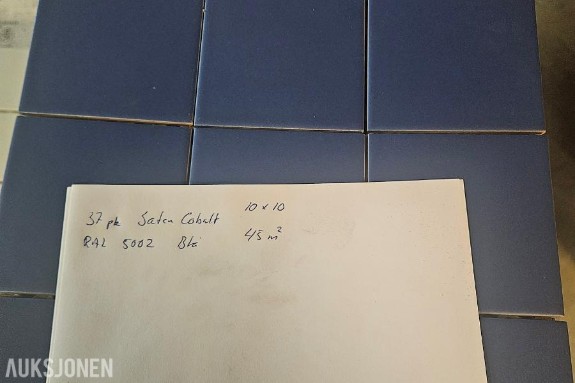 37 pk Saten Cobalt 10 x 10
RAL 5002 Blå 45 m²
AUKSJONEN